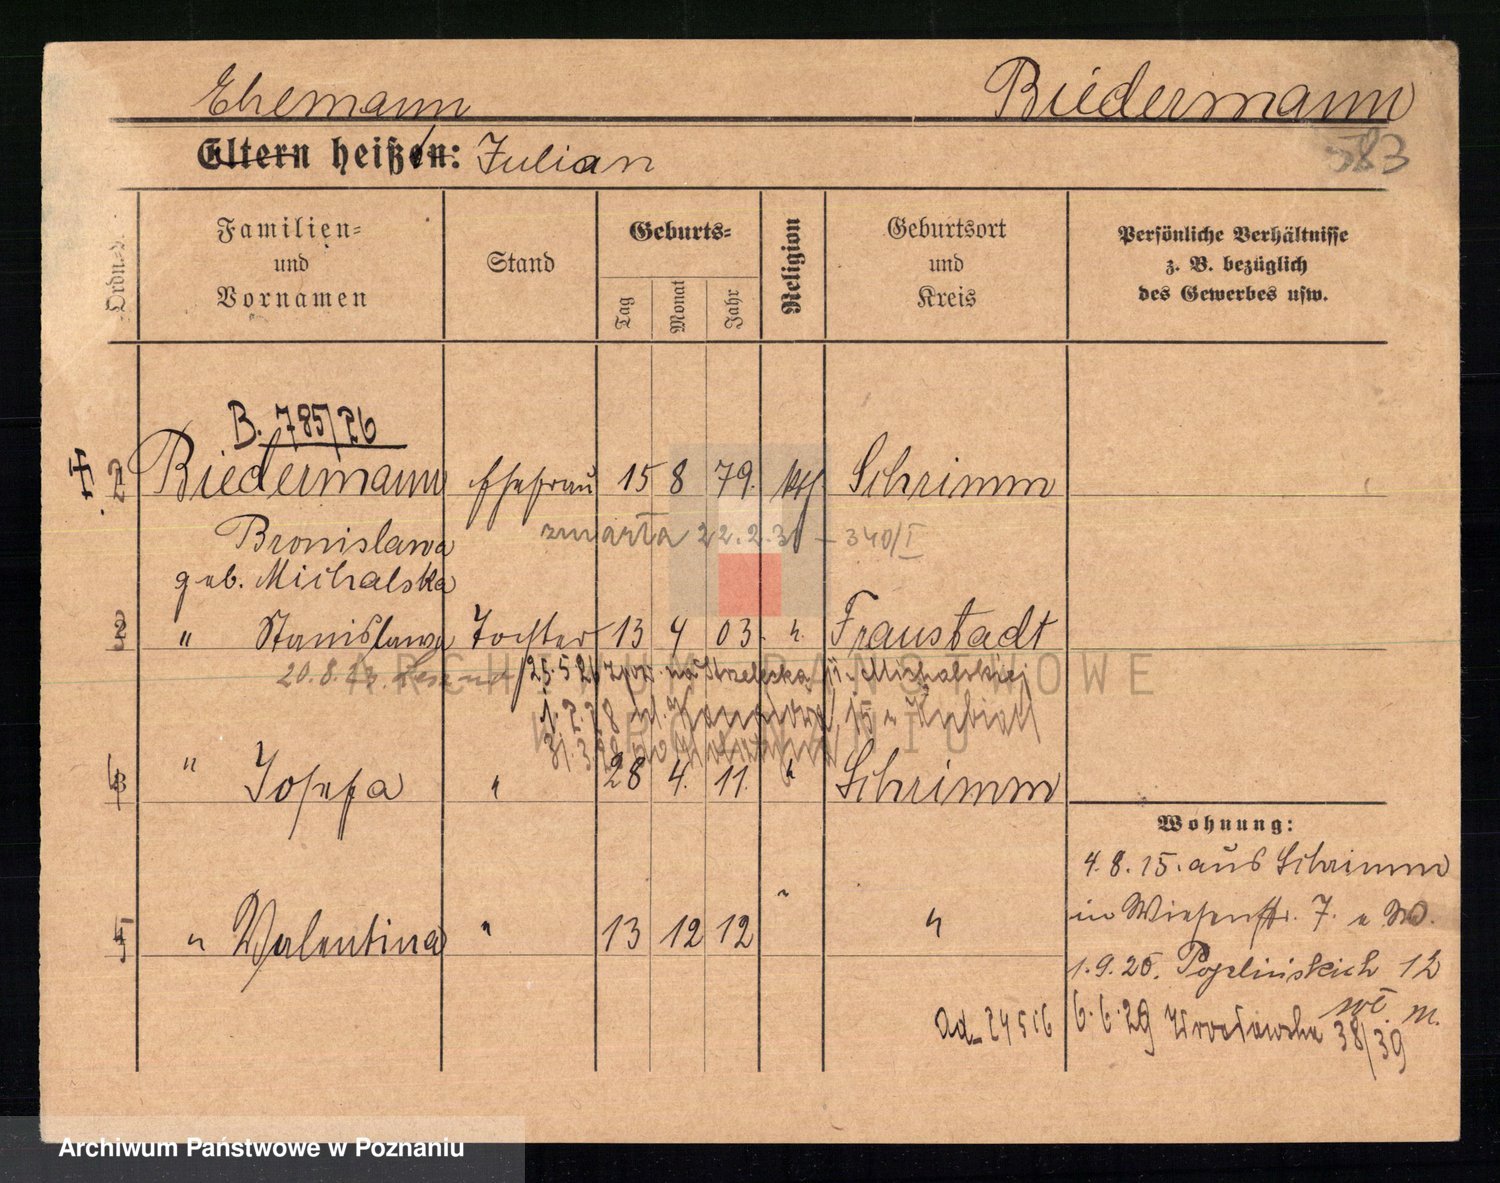 Ehemann Biedermann
Eltern heißen: Julian 583
Ordn.-N. Familien- und Vornamen Stand Geburts- Tag Monat Jahr Religion Geburtsort und Kreis Persönliche Verhältnisse z. B. bezüglich des Gewerbes usw.
B. 785/26
2 Biedermann Ehefrau 15 8 79. kth Schrimm
Bronislawa zmarła 22.2.31 – 340/I
geb. Michalska
3 " Stanislawa Tochter 13 4 03. " Fraustadt
20.8. 25.5.26 Strzelecka Michalskiej
1.2.28 15
31.3.29
4 " Josefa " 28 4. 11. " Schrimm
Wohnung:
4.8.15. aus Schrimm
in Wiesenstr. 7.
5 " Valentina " 13 12 12 " "
1.9.20. 12
wł. m.
Ad_24516 6.6.29 Wrocławska 38/39
ARCHIWUM PAŃSTWOWE
W POZNANIU
Archiwum Państwowe w Poznaniu